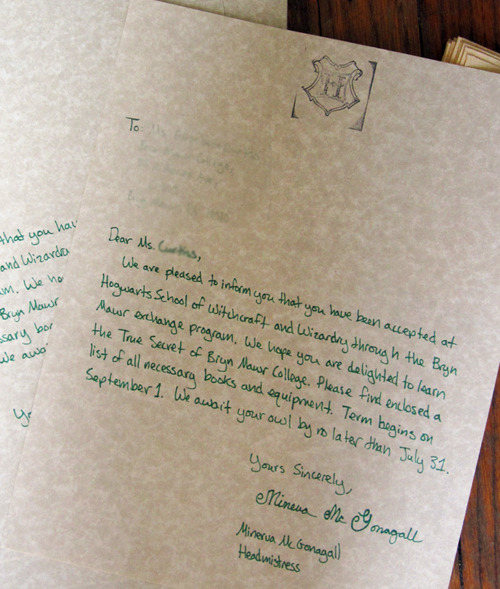 H
To:
Dear Ms.
We are pleased to inform you that you have been accepted at
Hogwarts School of Witchcraft and Wizardry through the Bryn
Mawr exchange program. We hope you are delighted to learn
the True Secret of Bryn Mawr College. Please find enclosed a
list of all necessary books and equipment. Term begins on
September 1. We await your owl by no later than July 31.
Yours Sincerely,
Minerva McGonagall
Minerva McGonagall
Headmistress
that you hav
and Wizardry
We ho
Bryn Mawr
ssary boo
We awai
Yo